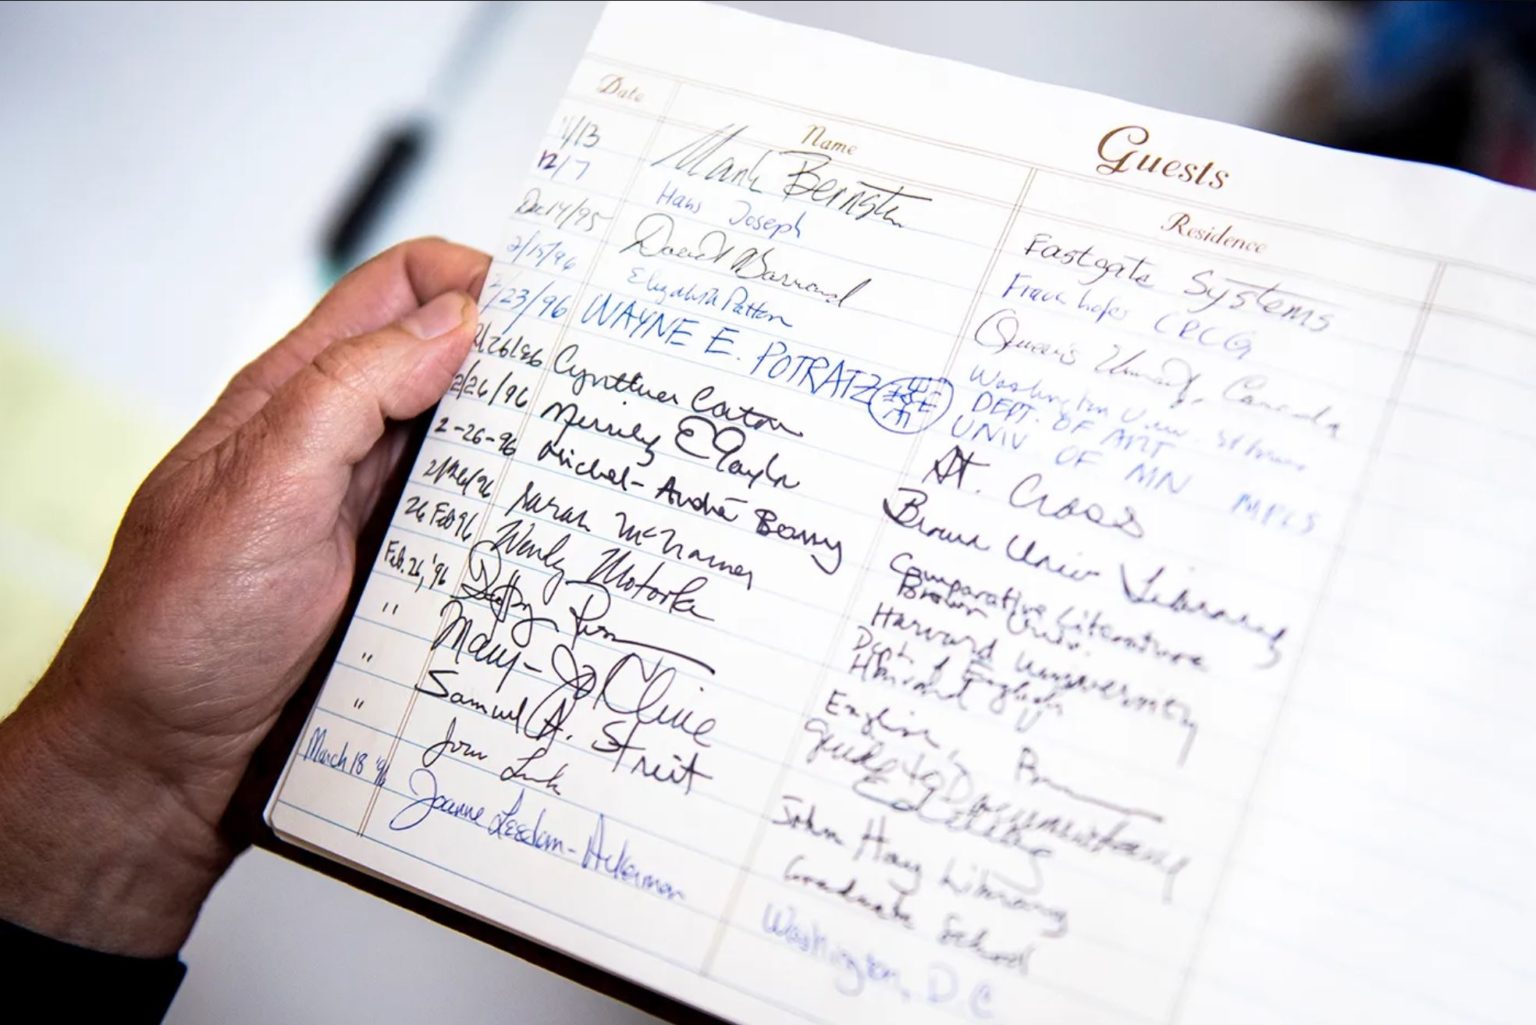 Guests
Date Name Residence
11/13 Mark Bernstein Eastgate Systems
12/7 Hans Joseph Fraunhofer CRCG
Dec 14/95 David Barnard Queen's University, Canada
2/15/96 Elizabeth Patton Washington U. in St.
DEPT. OF ART
2/23/96 WAYNE E. POTRATZ UNIV OF MN MPLS
2/26/96 Cynthia
2/26/96 Merrily E Taylor Brown Univ Library
2-26-96 Michel-André Bossy Comparative Literature
Brown Univ.
2/26/96 Sarah Harvard University
26 Feb 96 Wendy Motooka Dept. of English
Harvard
Feb. 26, '96 English,
" Mary-Jo Kline
" Samuel A. Streit John Hay Library
" Joan Lusk Graduate School
March 18 '96 Joanne Leedom-Ackerman Washington, D.C